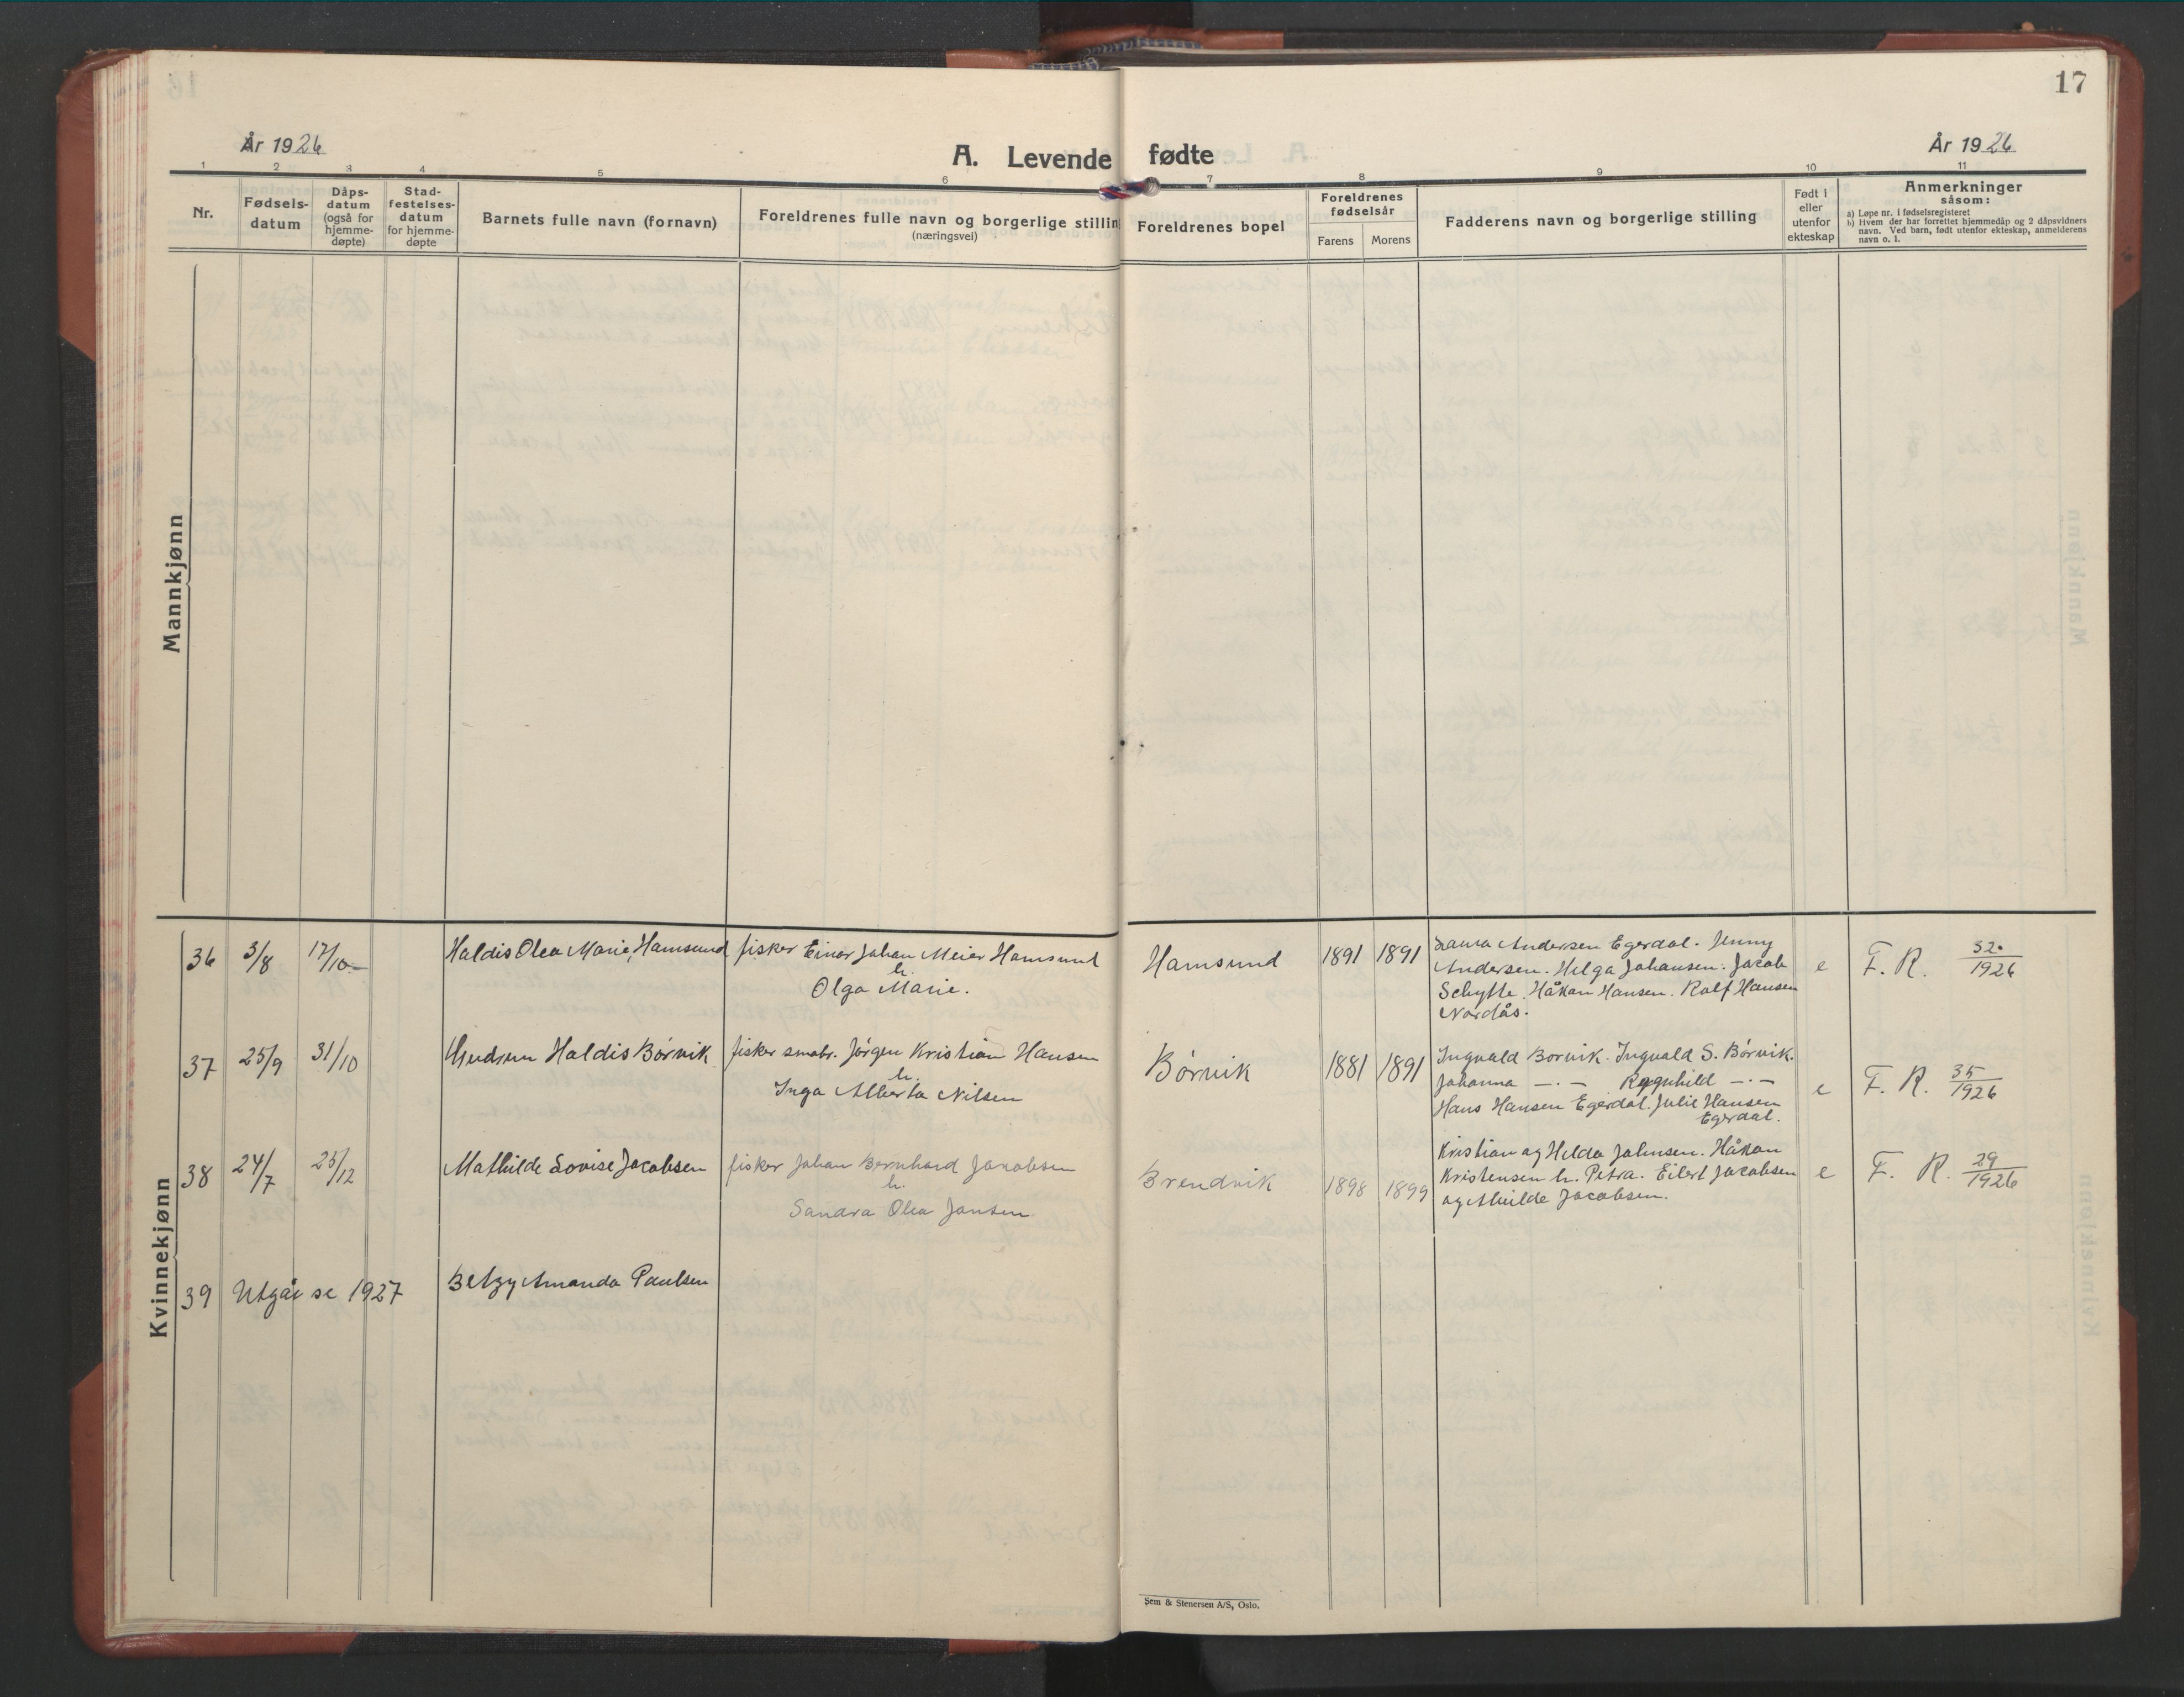 17
År 1926
A. Levende fødte
År 1926
1 2 3 4 5 6 7 8 9 10 11
Nr.
Fødsels-
datum
Dåps-
datum
(også for
hjemme-
døpte)
Stad-
festelses-
datum
for hjemme-
døpte
Barnets fulle navn (fornavn)
Foreldrenes fulle navn og borgerlige stillin
(næringsvei)
Foreldrenes bopel
Foreldrenes
fødselsår
Farens Morens
Fadderens navn og borgerlige stilling
Født i
eller
utenfor
ekteskap
Anmerkninger
såsom:
a) Løpe nr. i fødselsregisteret
b) Hvem der har forrettet hjemmedåp og 2 dåpsvidners
navn. Ved barn, født utenfor ekteskap, anmelderens
navn o. l.
Mannkjønn
Kvinnekjønn
36 3/8 17/10 Haldis Olea Marie Hamsund
fisker Einar Johan Meier Hamsund
h.
Olga Marie.
Hamsund 1891 1891
Laura Andersen Egerdal. Jenny
Andersen. Helga Johansen. Jacob
Schytte. Håkan Hansen. Ralf Hansen
Nordås.
e F. R. 32/1926
37 25/9 31/10 Gudrun Haldis Børvik
fisker småbr. Jørgen Kristian Hansen
h.
Inga Alberta Nilsen
Børvik 1881 1891
Ingvald Børvik. Ingvald S. Børvik.
Johanna —·— Ragnhild —·—
Hans Hansen Egerdal. Julie Hansen
Egerdal.
e F. R. 35/1926
38 24/7 25/12 Mathilde Lovise Jacobsen
fisker Johan Bernhard Jakobsen
h.
Sandra Olea Jansen
Brendvik 1898 1899
Kristian og Hilda Johnsen. Håkon
Kristensen h. Petra. Eilert Jacobsen
og Jacobsen.
e F. R. 29/1926
39 Utgår se 1927 Betzy Amanda Paulsen
Sem & Stenersen A/S, Oslo.